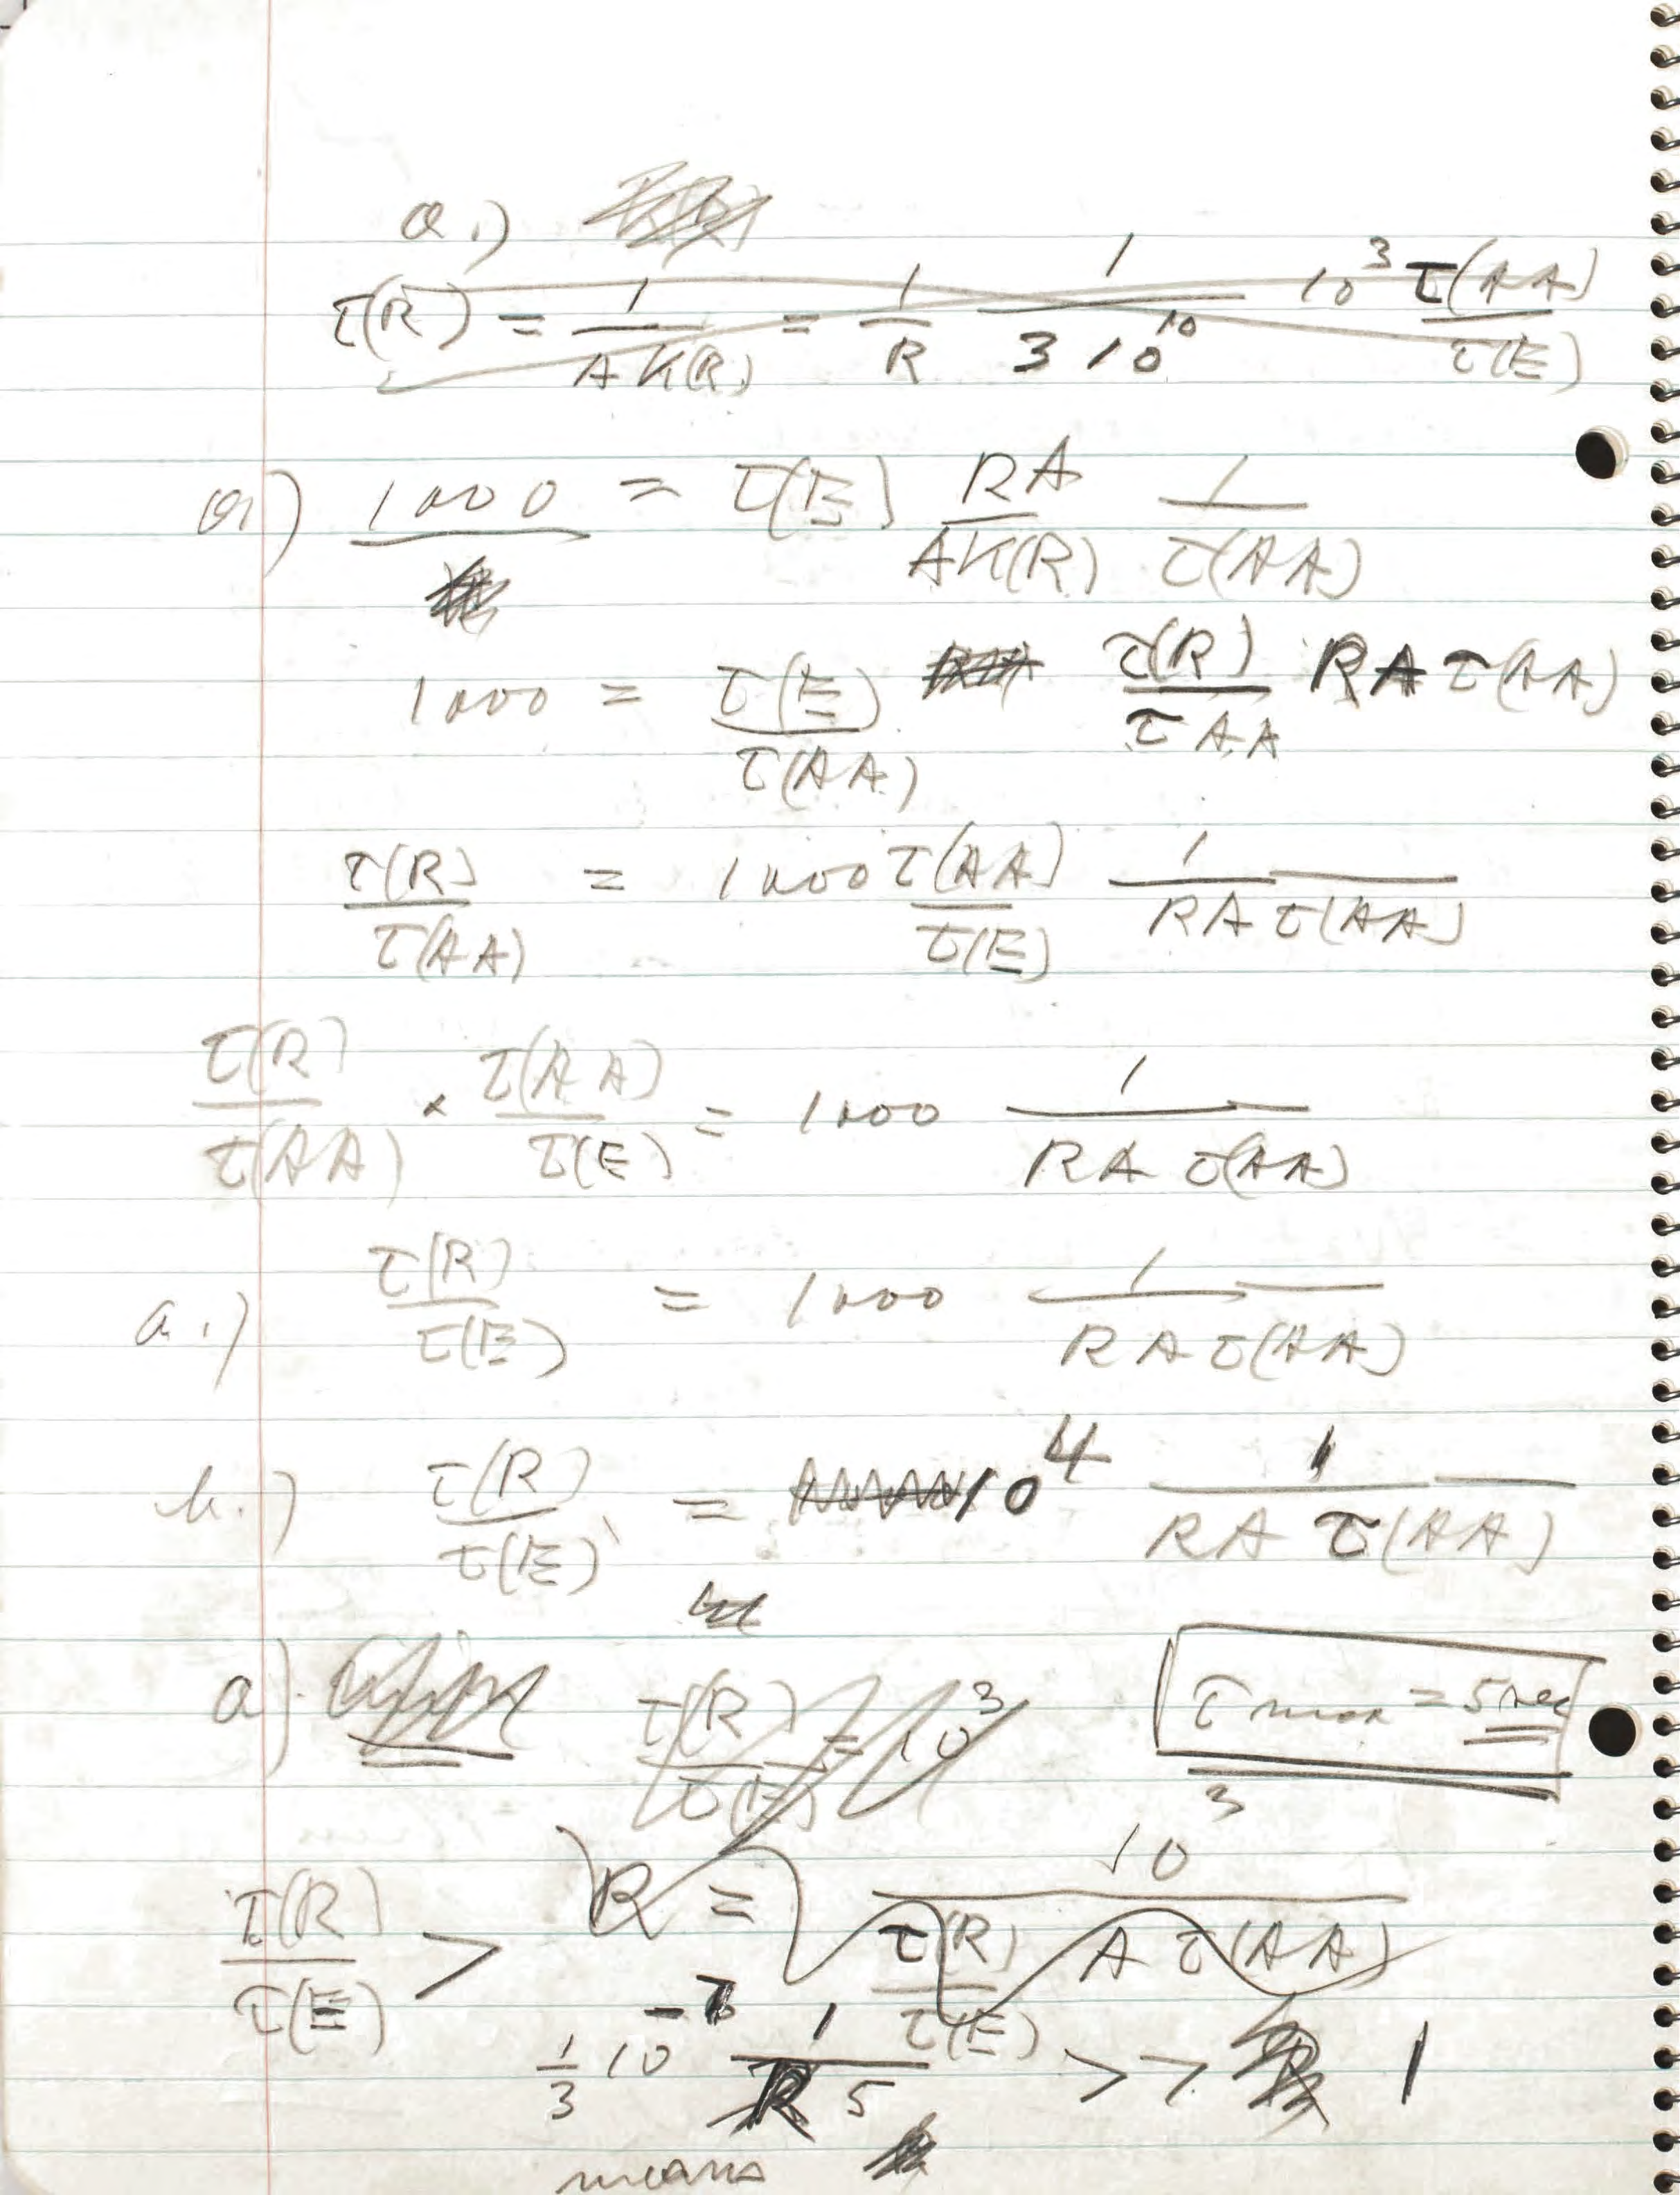 a.)
τ(R) = 1/AK(R) = 1/R 1/3 10^10 10^3 τ(AA)/τ(E)
a) 1000 = τ(E) RA/AK(R) 1/τ(AA)
1000 = τ(E)/τ(AA) τ(R)/τAA RA τ(AA)
τ(R)/τ(AA) = 1000 τ(AA)/τ(E) 1/RA τ(AA)
τ(R)/τ(AA) × τ(AA)/τ(E) = 1000 1/RA τ(AA)
a.) τ(R)/τ(E) = 1000 1/RA τ(AA)
b.) τ(R)/τ(E) = 10^4 1/RA τ(AA)
a) τ(R)/τ(E) = 10^3
τ max = 5 sec
R = 10^3/τ(R)/τ(E) A τ(AA)
τ(R)/τ(E) > 1/3 10^-7 1/5 >> 1
means